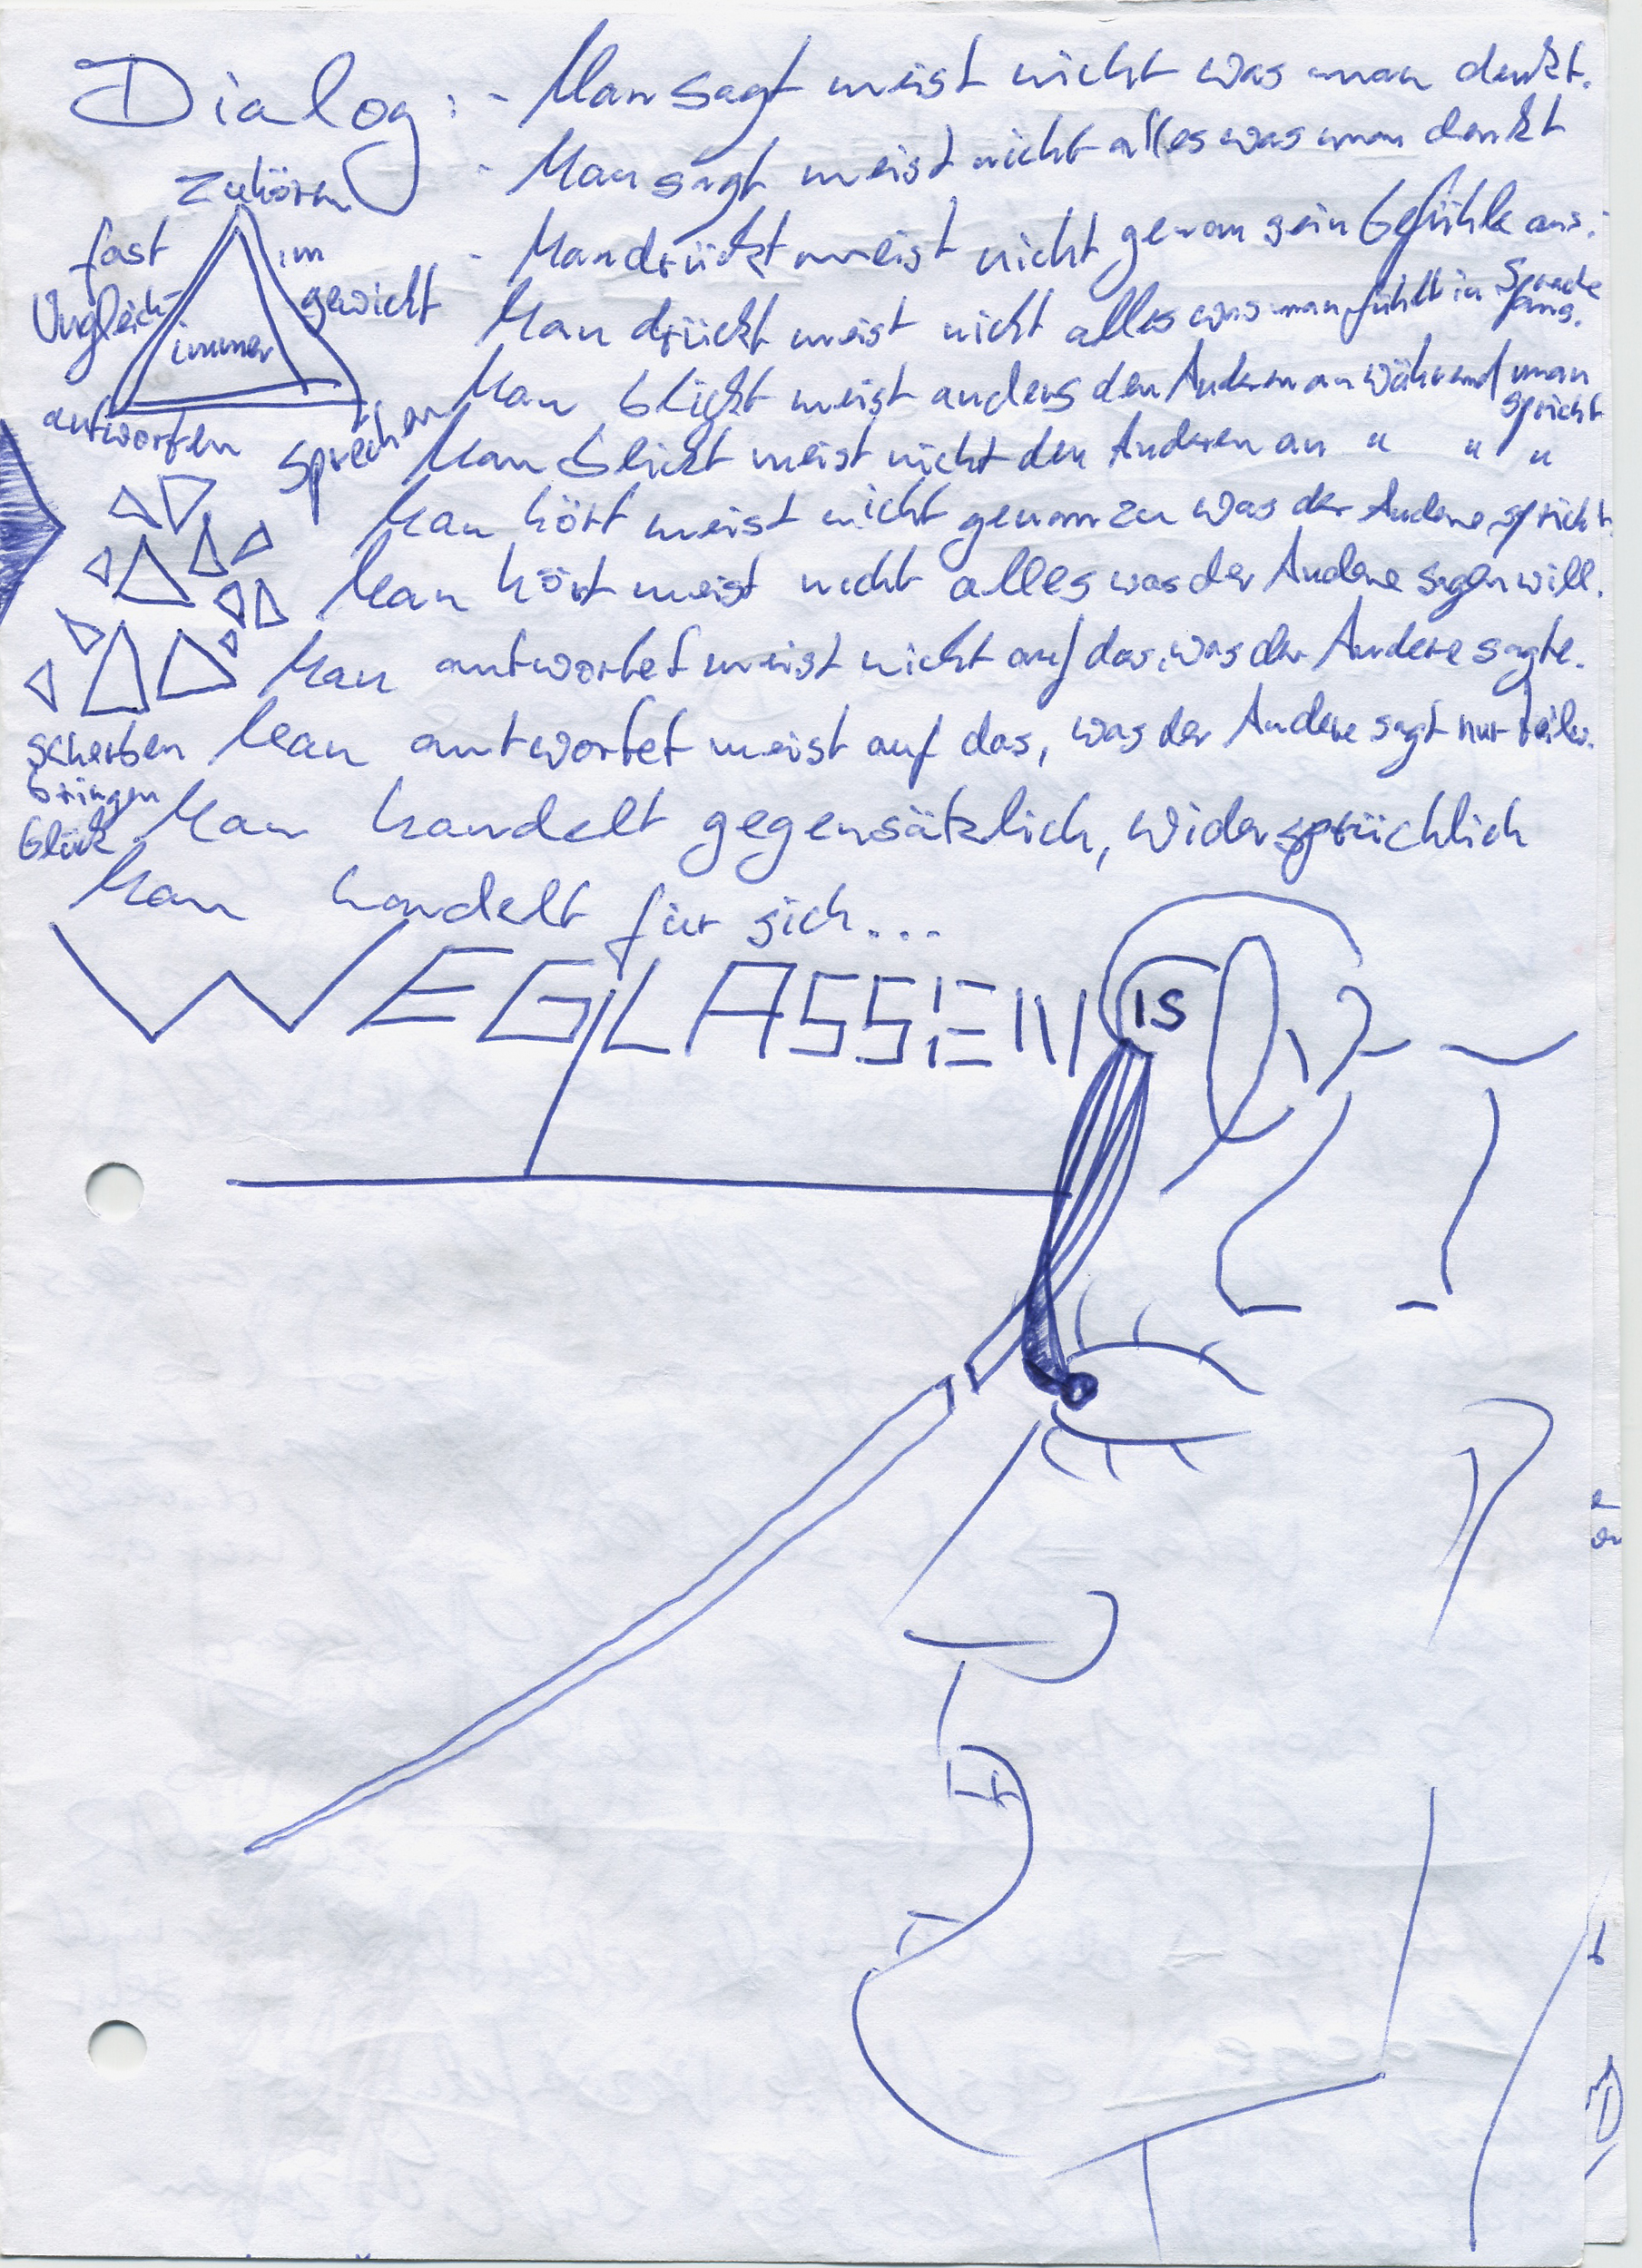 Dialog: - Man sagt meist nicht was man denkt.
- Man sagt meist nicht alles was man denkt
- Man drückt meist nicht genau sein Gefühle aus.
Man drückt meist nicht alles was man fühlt in Sprache aus.
Man blickt meist anders den Anderen an während man spricht
Man blickt meist nicht den Anderen an " " "
Man hört meist nicht genau zu was der Andere spricht.
Man hört meist nicht alles was der Andere sagen will.
Man antwortet meist nicht auf das, was der Andere sagte.
Man antwortet meist auf das, was der Andere sagt nur teilw.
Man handelt gegensätzlich, widersprüchlich
Man handelt für sich...
zuhören
fast im
Ungleich- gewicht
immer
antworten sprechen
scherben
bringen
Glück
WEGLASSEN
IS